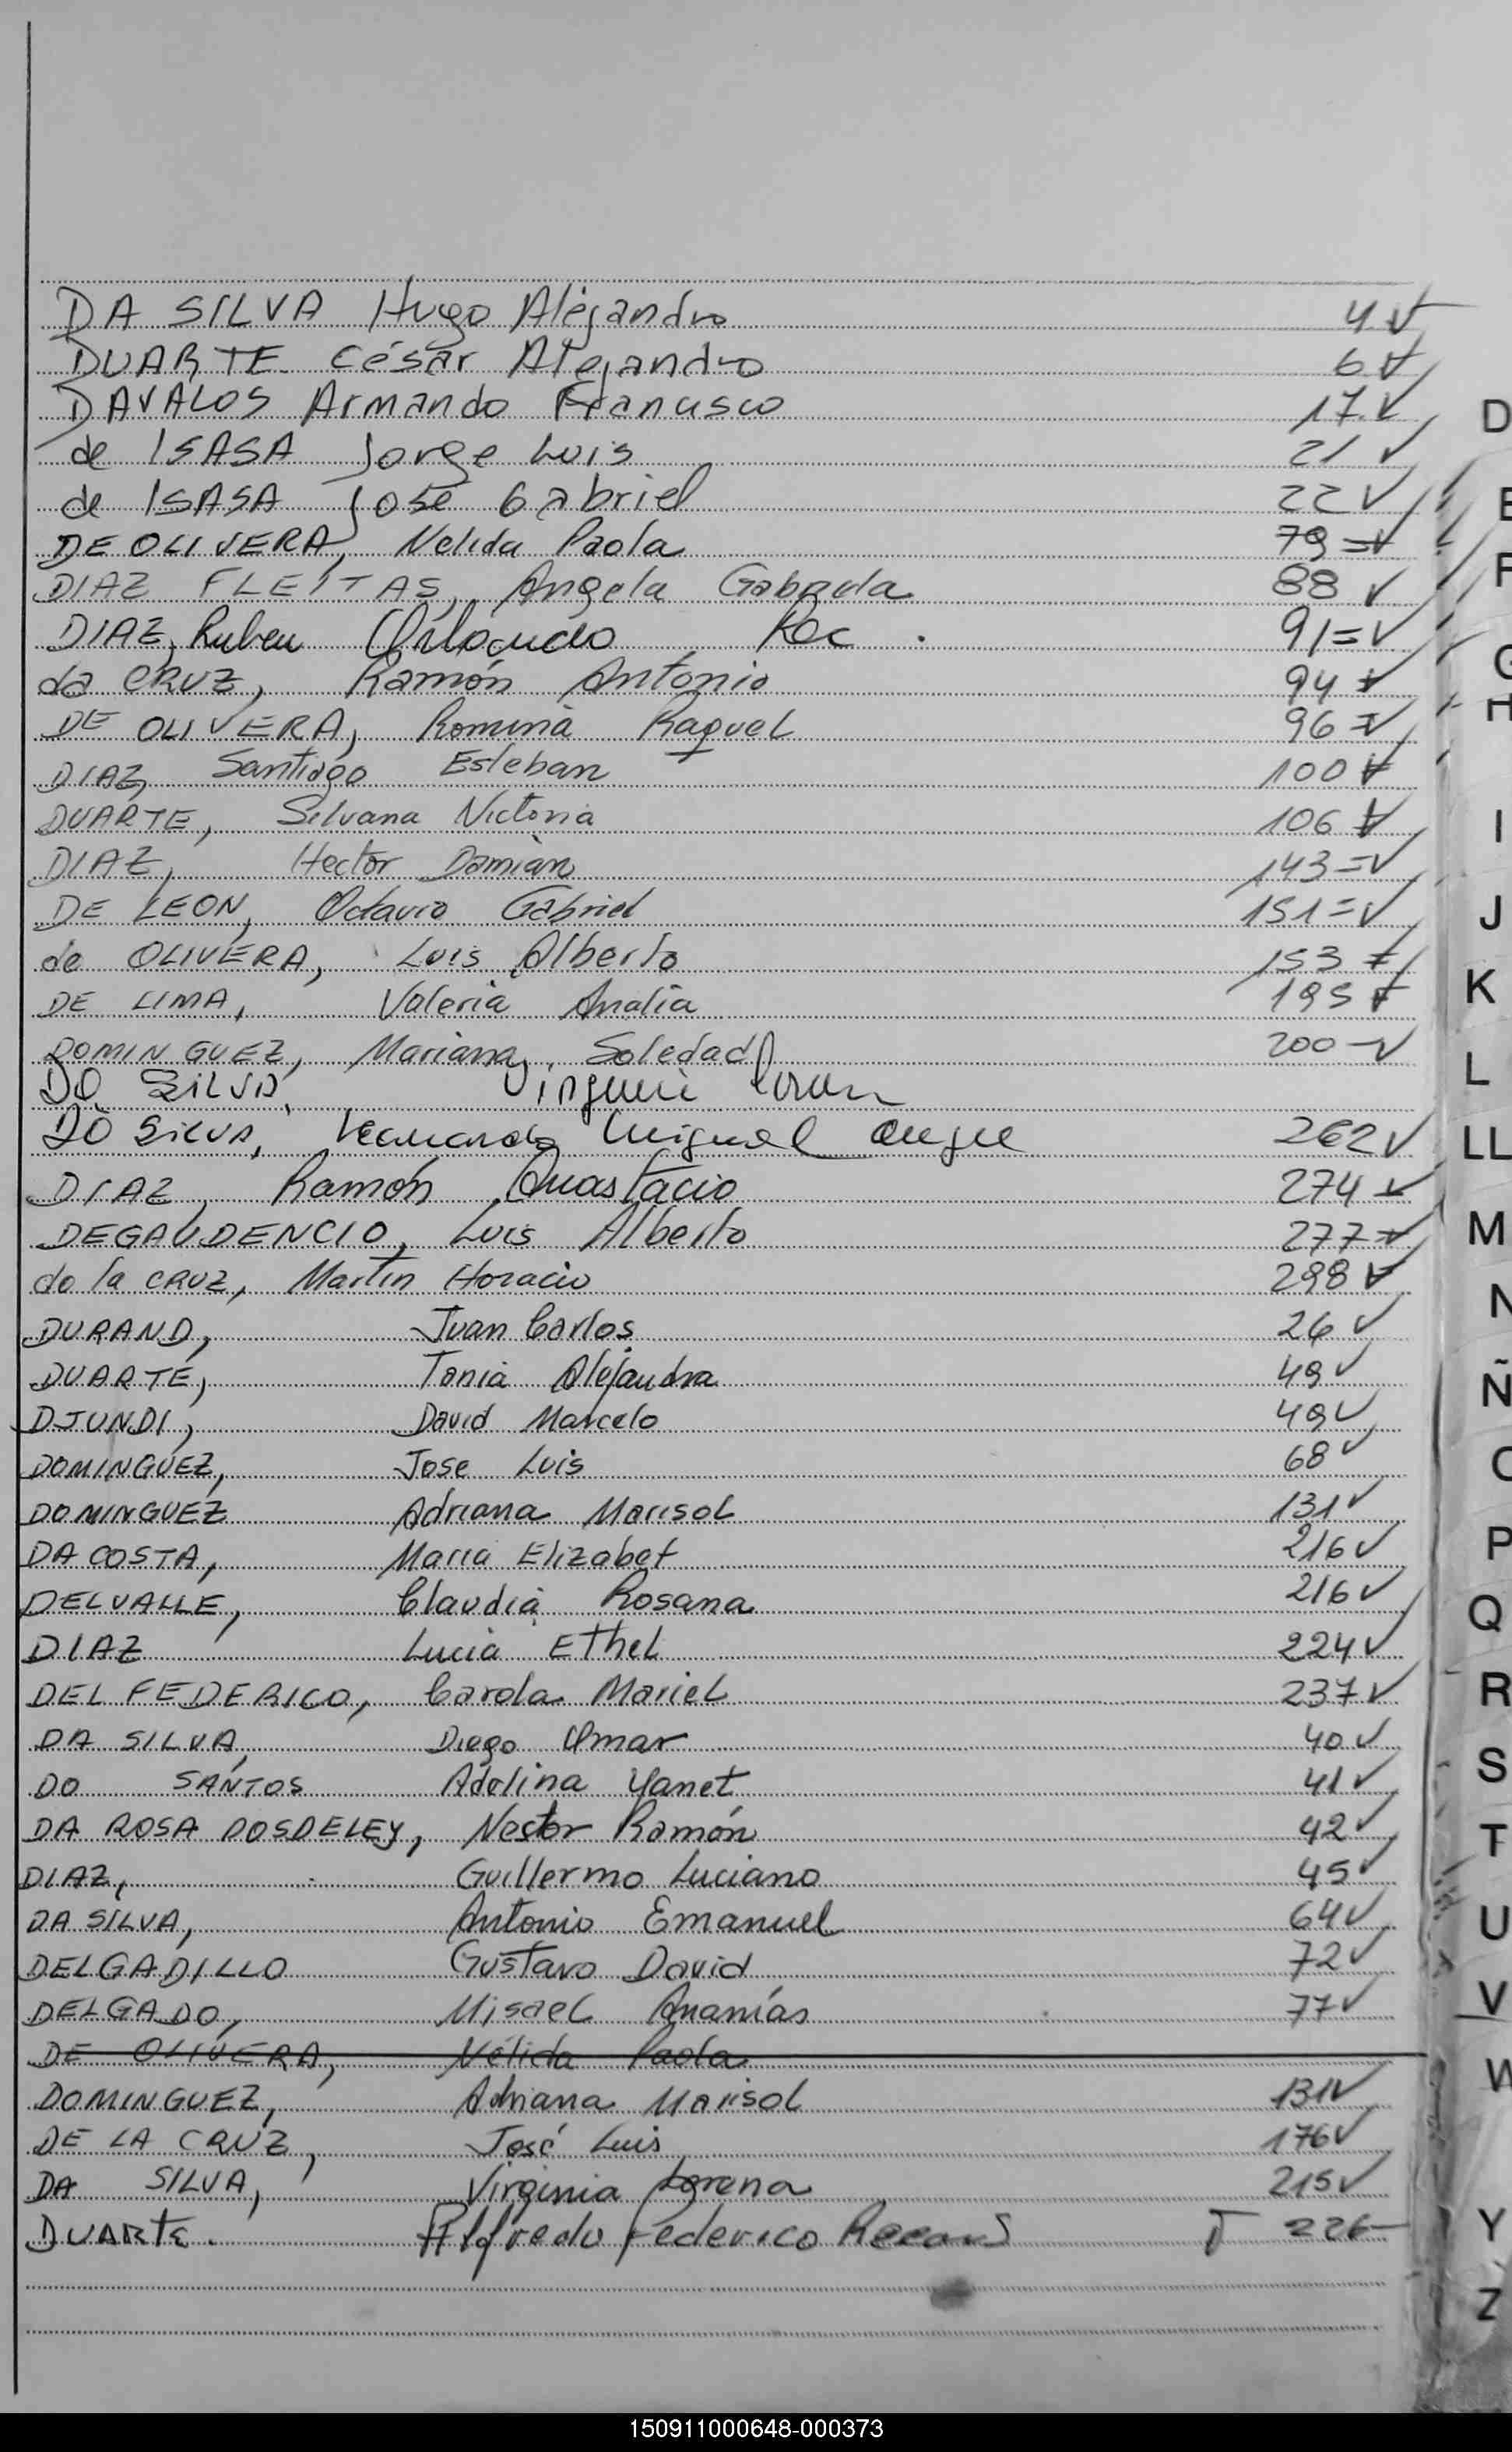 DA SILVA Hugo Alejandro 4 ✓
DUARTE César Alejandro 6 ✓
DAVALOS Armando Francisco 17 ✓
de ISASA Jorge Luis 21 ✓
de ISASA José Gabriel 22 ✓
DE OLIVERA, Nelida Paola 79 = ✓
DIAZ FLEITAS, Angela Gabriela 88 ✓
DIAZ, Ruben Orlando Rec. 91 = ✓
da CRUZ, Ramón Antonio 94 ✓
DE OLIVERA, Romina Raquel 96 = ✓
DIAZ, Santiago Esteban 100 ✓
DUARTE, Silvana Victoria 106 ✓
DIAZ, Hector Damian 143 = ✓
DE LEON, Octavio Gabriel 151 = ✓
de OLIVERA, Luis Alberto 153 ✓
DE LIMA, Valeria Analia 195 ✓
DOMINGUEZ, Mariana Soledad 200 - ✓
DA SILVA, Virginia
DA SILVA, Miguel 262 ✓
DIAZ, Ramón Anastacio 274 ✓
DEGAUDENCIO, Luis Alberto 277 = ✓
de la CRUZ, Martin Horacio 298 ✓
DURAND, Juan Carlos 26 ✓
DUARTE, Tania Alejandra 49 ✓
DJUNDI, David Marcelo 49 ✓
DOMINGUEZ, Jose Luis 68 ✓
DOMINGUEZ Adriana Marisol 131 ✓
DA COSTA, Maria Elizabet 216 ✓
DELVALLE, Claudia Rosana 216 ✓
DIAZ Lucia Ethel 224 ✓
DEL FEDERICO, Carola Mariel 237 ✓
DA SILVA, Diego Omar 40 ✓
DO SANTOS Adelina Yanet 41 ✓
DA ROSA DOSDELEY, Nestor Ramón 42 ✓
DIAZ, Guillermo Luciano 45 ✓
DA SILVA, Antonio Emanuel 64 ✓
DELGADILLO Gustavo David 72 ✓
DELGADO, Misael Ananías 77 ✓
DE OLIVERA, Nélida Paola
DOMINGUEZ, Adriana Marisol 131 ✓
DE LA CRUZ, José Luis 176 ✓
DA SILVA, Virginia Lorena 215 ✓
DUARTE. Alfredo Federico 226 -
D
E
F
G
H
I
J
K
L
LL
M
N
Ñ
O
P
Q
R
S
T
U
V
W
Y
Z
150911000648-000373